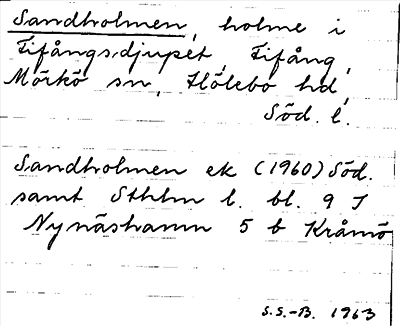 Sandholmen, holme i
Fifångsdjupet, Fifång,
Mörkö sn, Hölebo hd,
Söd. l.
Sandholmen ek (1960) Söd.
samt Sthlm l. bl. 9 I
Nynäshamn 5 b Kråmö
S.S.-B. 1963